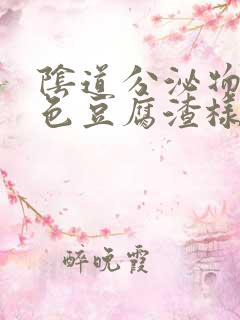 陰道分泌物
色豆腐渣樣
醉晚霞